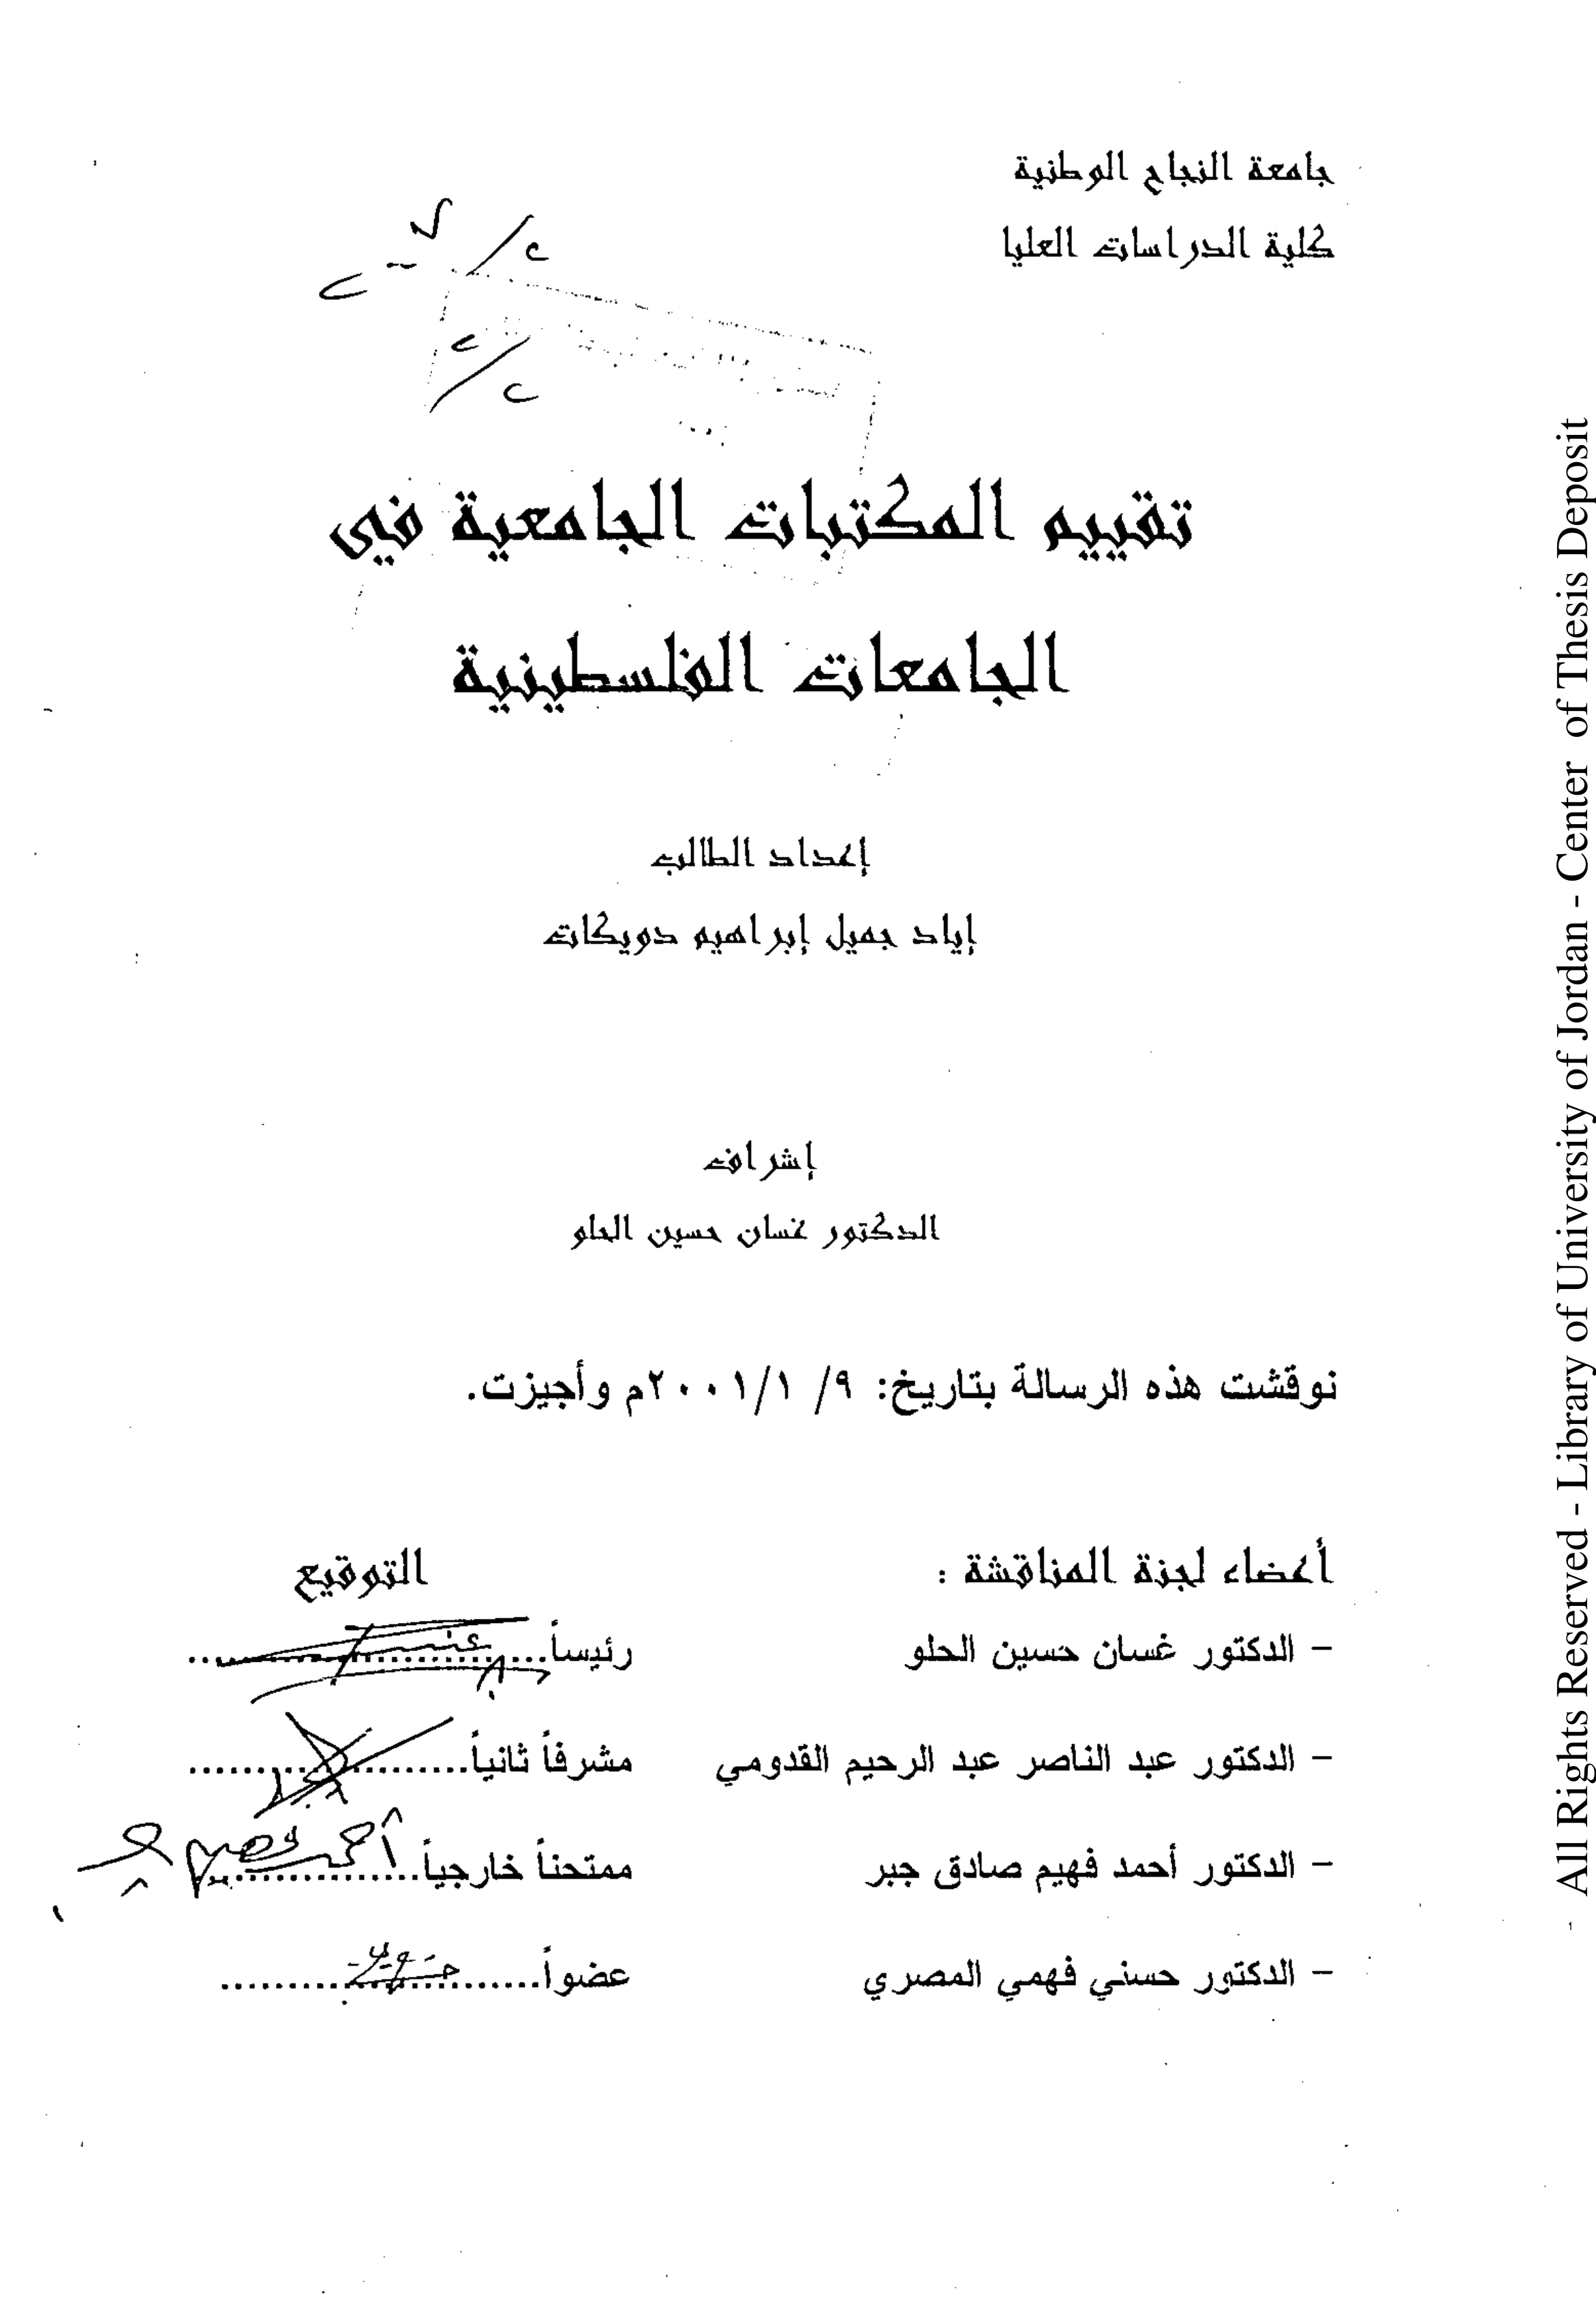 جامعة النجاح الوطنية
كلية الدراسات العليا
تقييم المكتبات الجامعية في
الجامعات الفلسطينية
إعداد الطالب
إياد جميل إبراهيم دويكات
إشراف
الدكتور غسان حسين الحلو
نوقشت هذه الرسالة بتاريخ: ٩/ ١/ ٢٠٠١م وأجيزت.
أعضاء لجنة المناقشة : التوقيع
- الدكتور غسان حسين الحلو رئيساً....................
- الدكتور عبد الناصر عبد الرحيم القدومي مشرفاً ثانياً....................
- الدكتور أحمد فهيم صادق جبر ممتحناً خارجياً....................
- الدكتور حسني فهمي المصري عضواً....................
All Rights Reserved - Library of University of Jordan - Center of Thesis Deposit